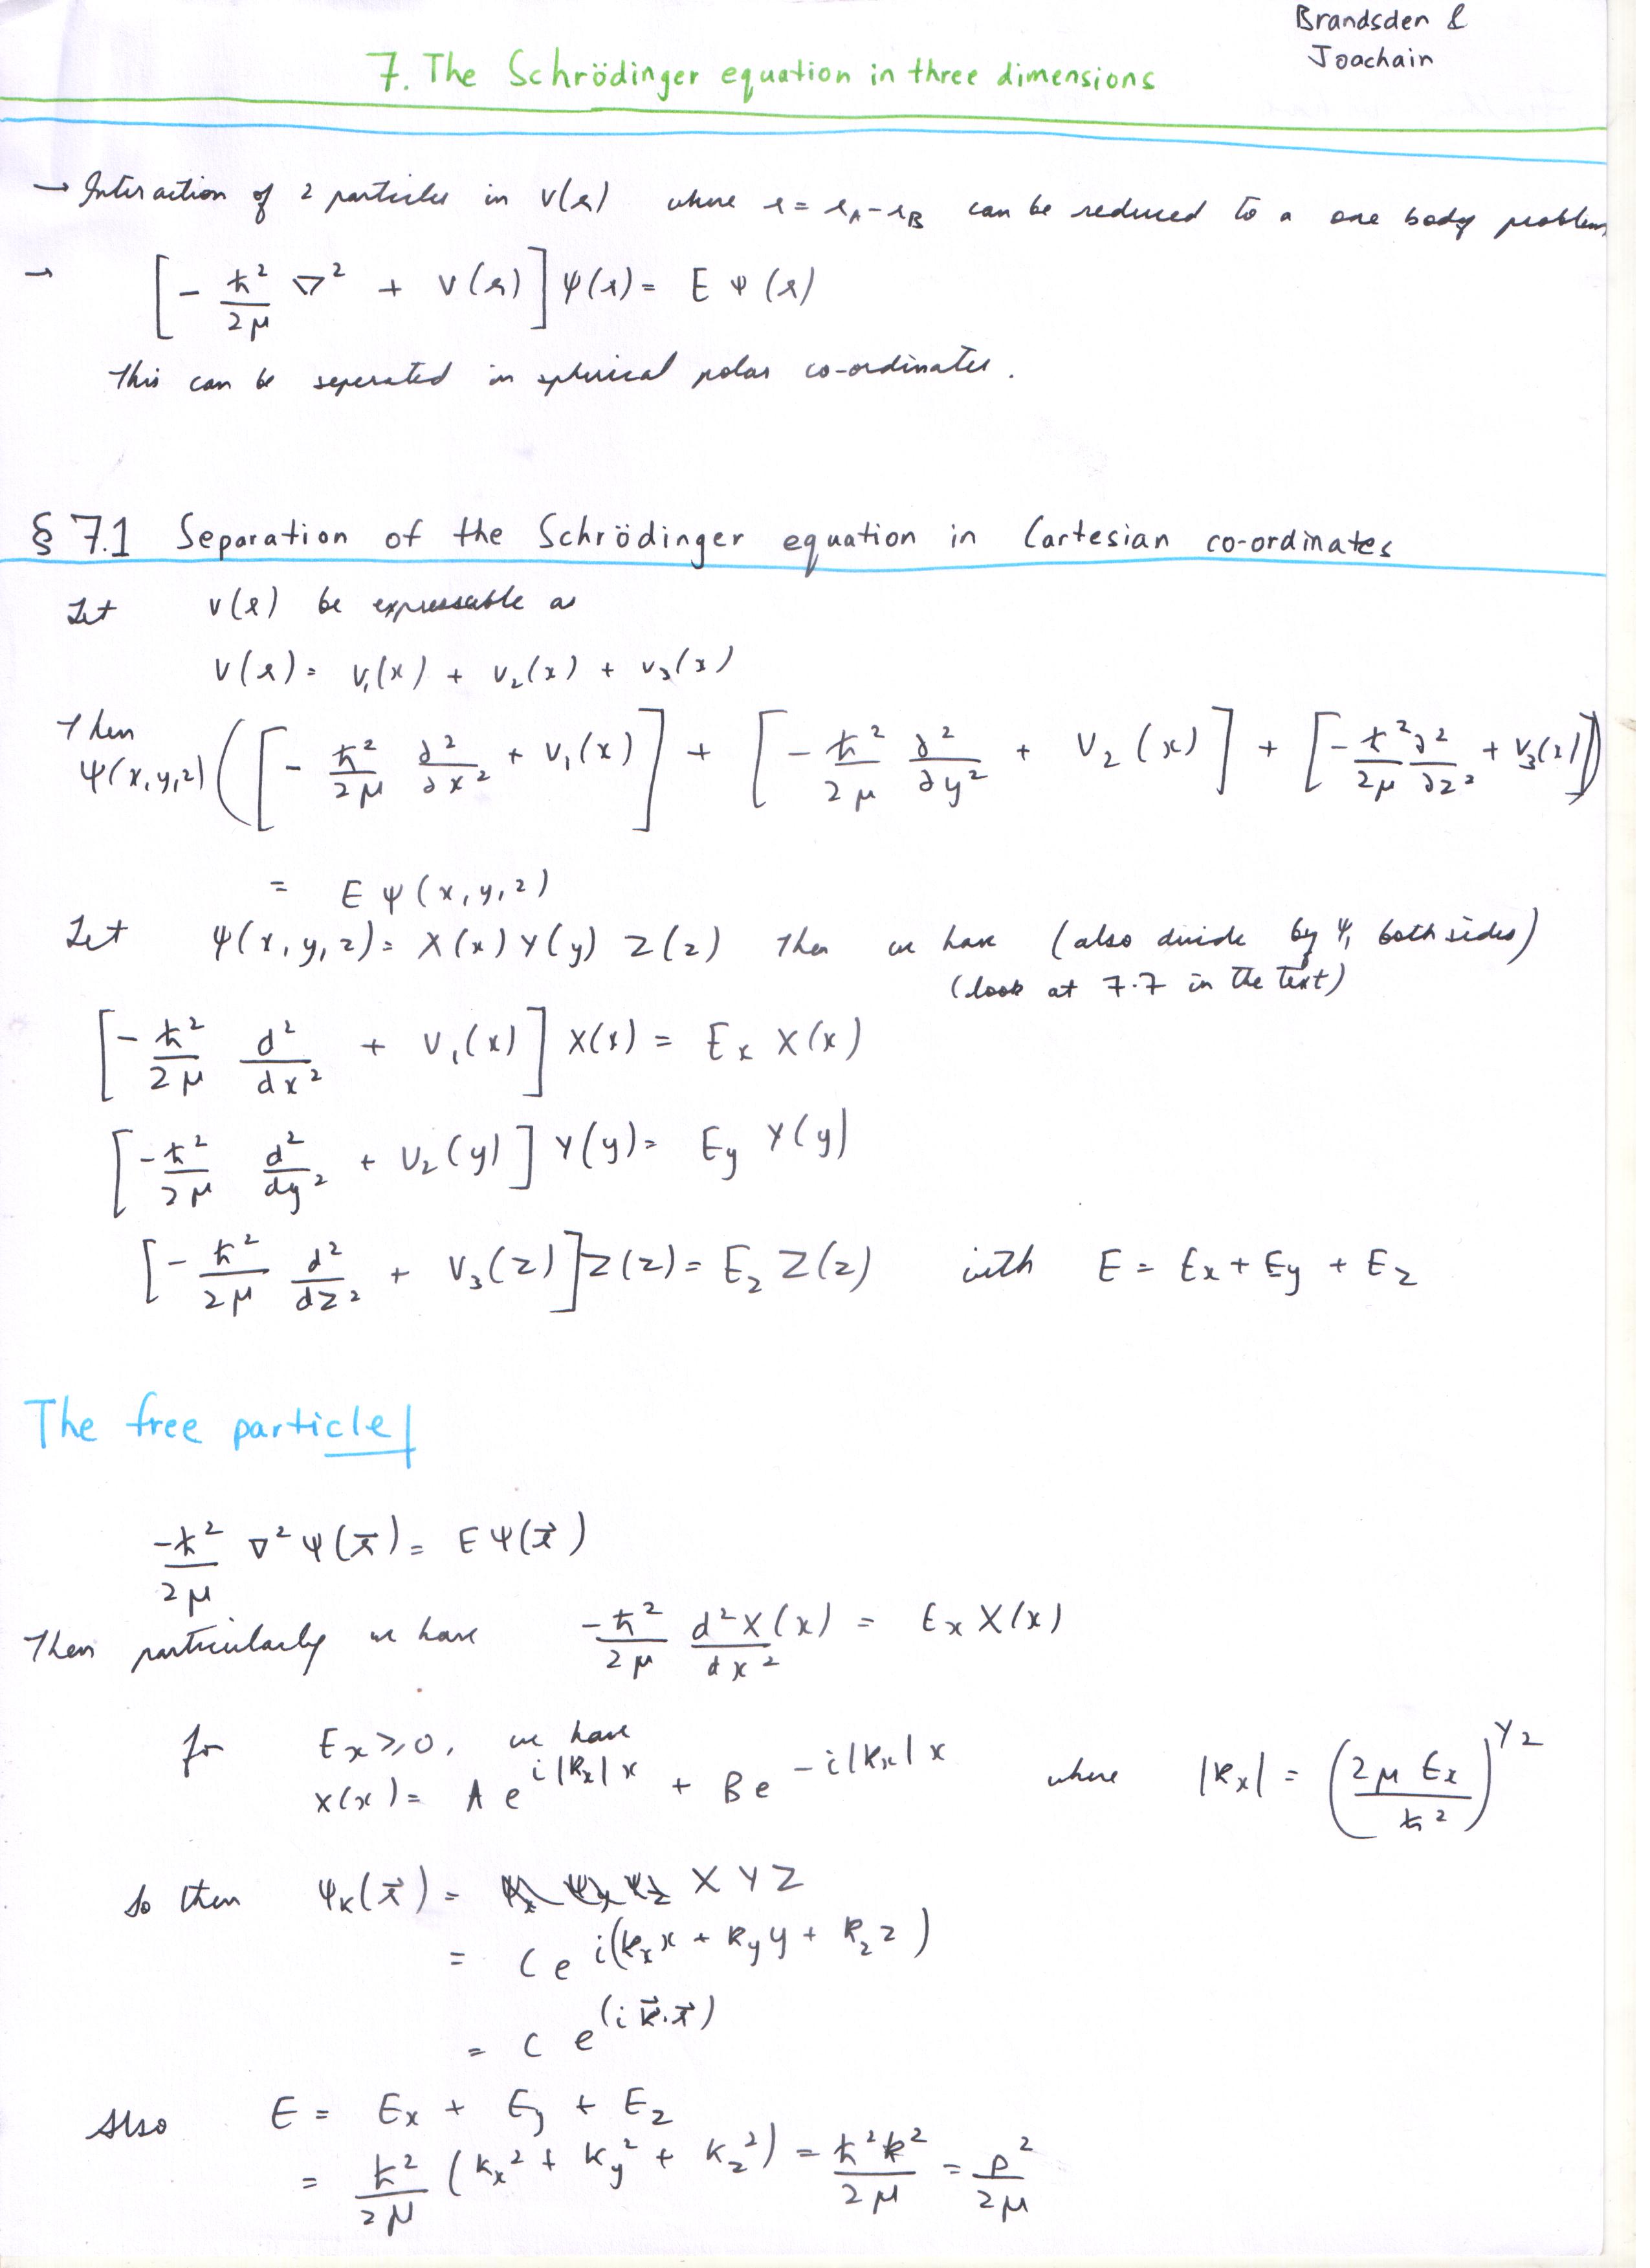 Brandsden &
Joachain
7. The Schrödinger equation in three dimensions
→ Interaction of 2 particles in V(r) where r = r_A - r_B can be reduced to a one body problem
→ [ - ħ²/2μ ∇² + V(r) ] ψ(r) = E ψ(r)
This can be seperated in spherical polar co-ordinates.
§ 7.1 Separation of the Schrödinger equation in Cartesian co-ordinates
Let V(r) be expressable as
V(r) = V₁(x) + V₂(x) + V₃(x)
Then
ψ(x,y,z) ( [ - ħ²/2μ ∂²/∂x² + V₁(x) ] + [ - ħ²/2μ ∂²/∂y² + V₂(x) ] + [ - ħ²/2μ ∂²/∂z² + V₃(x) ] )
= E ψ(x,y,z)
Let ψ(x,y,z) = X(x) Y(y) Z(z) Then we have (also divide by ψ, both sides)
(look at 7.7 in the text)
[ - ħ²/2μ d²/dx² + V₁(x) ] X(x) = E_x X(x)
[ - ħ²/2μ d²/dy² + V₂(y) ] Y(y) = E_y Y(y)
[ - ħ²/2μ d²/dz² + V₃(z) ] Z(z) = E_z Z(z) with E = E_x + E_y + E_z
The free particle
-ħ²/2μ ∇² ψ(r⃗) = E ψ(r⃗)
Then particularly we have -ħ²/2μ d²X(x)/dx² = E_x X(x)
for E_x ≥ 0, we have
X(x) = A e^{i|k_x|x} + B e^{-i|k_x|x} where |k_x| = (2μ E_x/ħ²)^{1/2}
So then ψ_k(r⃗) = X Y Z
= C e^{i(k_x x + k_y y + k_z z)}
= C e^{(i k⃗.r⃗)}
Also E = E_x + E_y + E_z
= ħ²/2μ (k_x² + k_y² + k_z²) = ħ²k²/2μ = p²/2μ